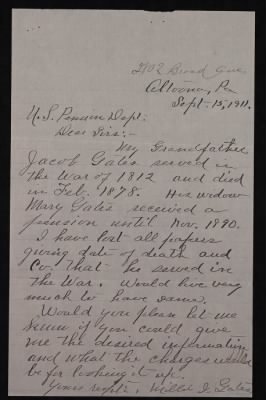 2902 Broad Ave
Altoona, Pa
Sept. 15, 1911.
U.S. Pension Dept:
Dear Sirs:-
My Grandfather
Jacob Gates served in
the War of 1812 and died
in Feb. 1878. His widow
Mary Gates received a
pension until Nov. 1890.
I have lost all papers
giving date of death and
Co. that he served in
the War. Would like very
much to have same.
Would you please let me
know if you could give
me the desired information
and what the charges would
be for looking it up.
Yours respt., Gates